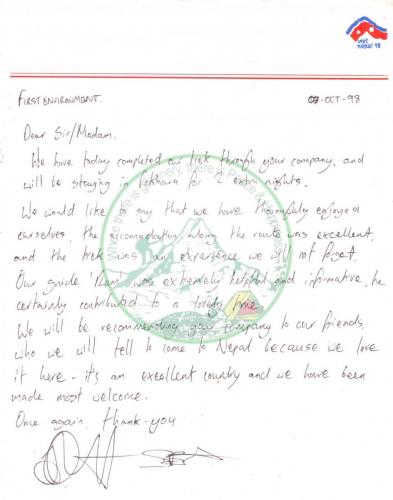 visit
nepal '98
FIRST ENVIRONMENT.
07-OCT-98
Dear Sir/Madam,
We have today completed our trek through your company, and
will be staying in Pokhara for 2 extra nights.
We would like to say that we have thoroughly enjoyed
ourselves, the accomodation along the route was excellent,
and the trek was an experience we will not forget.
Our guide 'Ram' was extremely helpful and informative, he
certainly contributed to a lovely time.
We will be recommending your company to our friends,
who we will tell to come to Nepal because we love
it here - it's an excellent country and we have been
made most welcome.
Once again, thank-you
where there is Scenery, there is Peace &